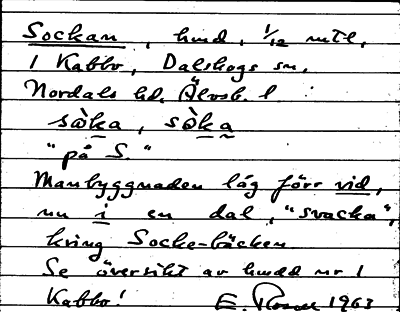 Sockan, hmd, 1/12 mtl,
1 Kabbo, Dalskogs sn,
Nordals hd, Älvsb. l
sòka, sòka
"på S."
Manbyggnaden låg förr vid,
nu i en dal, "svacka",
kring Socke-bäcken
Se översikt av hmdd nr 1
Kabbo! E. 1963